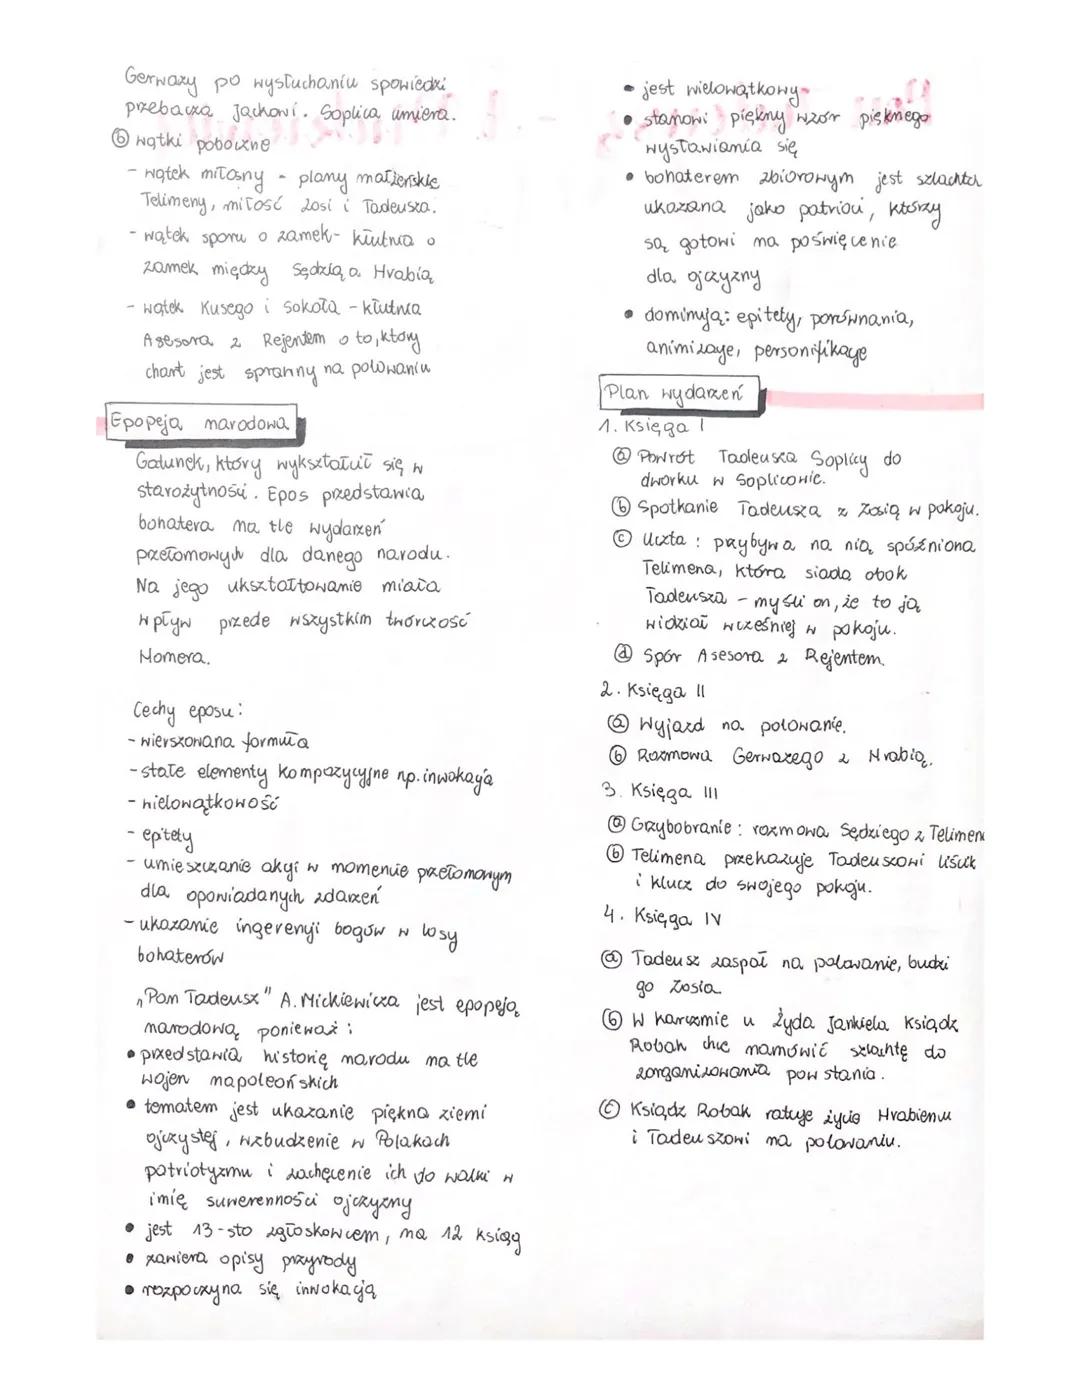 Gerwazy po wysłuchaniu spowiedzi
przebacza Jackowi. Soplica umiera.
ⓑ wątki poboczne
- wątek miłosny - plany małżeńskie
Telimeny, miłość Zosi i Tadeusza.
- wątek sporu o zamek - kłutnia o
zamek między Sędzią a Hrabią
- wątek Kusego i Sokoła - kłutnia
Asesora z Rejentem o to, który
chart jest sprawny na polowaniu
Epopeja narodowa
Gatunek, który wykształcił się w
starożytności. Epos przedstawia
bohatera na tle wydarzeń
przełomowych dla danego narodu.
Na jego ukształtowanie miała
wpływ przede wszystkim twórczość
Homera.
Cechy eposu:
- wierszowana formuła
- stałe elementy kompozycyjne np. inwokacja
- wielowątkowość
- epitety
- umieszczanie akcji w momencie przełomowym
dla opowiadanych zdarzeń
- ukazanie ingerencji bogów w losy
bohaterów
„Pan Tadeusz" A. Mickiewicza jest epopeją
narodową ponieważ:
• przedstawia historię narodu na tle
wojen napoleońskich
• tematem jest ukazanie piękna ziemi
ojczystej, wzbudzenie w Polakach
patriotyzmu i zachęcenie ich do walki w
imię suwerenności ojczyzny
• jest 13-sto zgłoskowcem, ma 12 ksiąg
• zawiera opisy przyrody
• rozpoczyna się inwokacją
• jest wielowątkowy
• stanowi piękny wzór pięknego
wysławiania się
• bohaterem zbiorowym jest szlachta
ukazana jako patrioci, którzy
są gotowi na poświęcenie
dla ojczyzny
• dominują: epitety, porównania,
animizacje, personifikacje
Plan wydarzeń
1. Księga I
ⓐ Powrót Tadeusza Soplicy do
dworku w Soplicowie.
ⓑ Spotkanie Tadeusza z Zosią w pokoju.
ⓒ Uczta: przybywa na nią spóźniona
Telimena, która siada obok
Tadeusza - myśli on, że to ją
widział wcześniej w pokoju.
ⓓ Spór Asesora z Rejentem.
2. Księga II
ⓐ Wyjazd na polowanie.
ⓑ Rozmowa Gerwazego z Hrabią.
3. Księga III
ⓐ Grzybobranie: rozmowa Sędziego z Telimen
ⓑ Telimena przekazuje Tadeuszowi liścik
i klucz do swojego pokoju.
4. Księga IV
ⓐ Tadeusz zaspał na polowanie, budzi
go Zosia
ⓑ W karczmie u Żyda Jankiela Ksiądz
Robak chce namówić szlachtę do
zorganizowania powstania.
ⓒ Ksiądz Robak ratuje życie Hrabiemu
i Tadeuszowi na polowaniu.